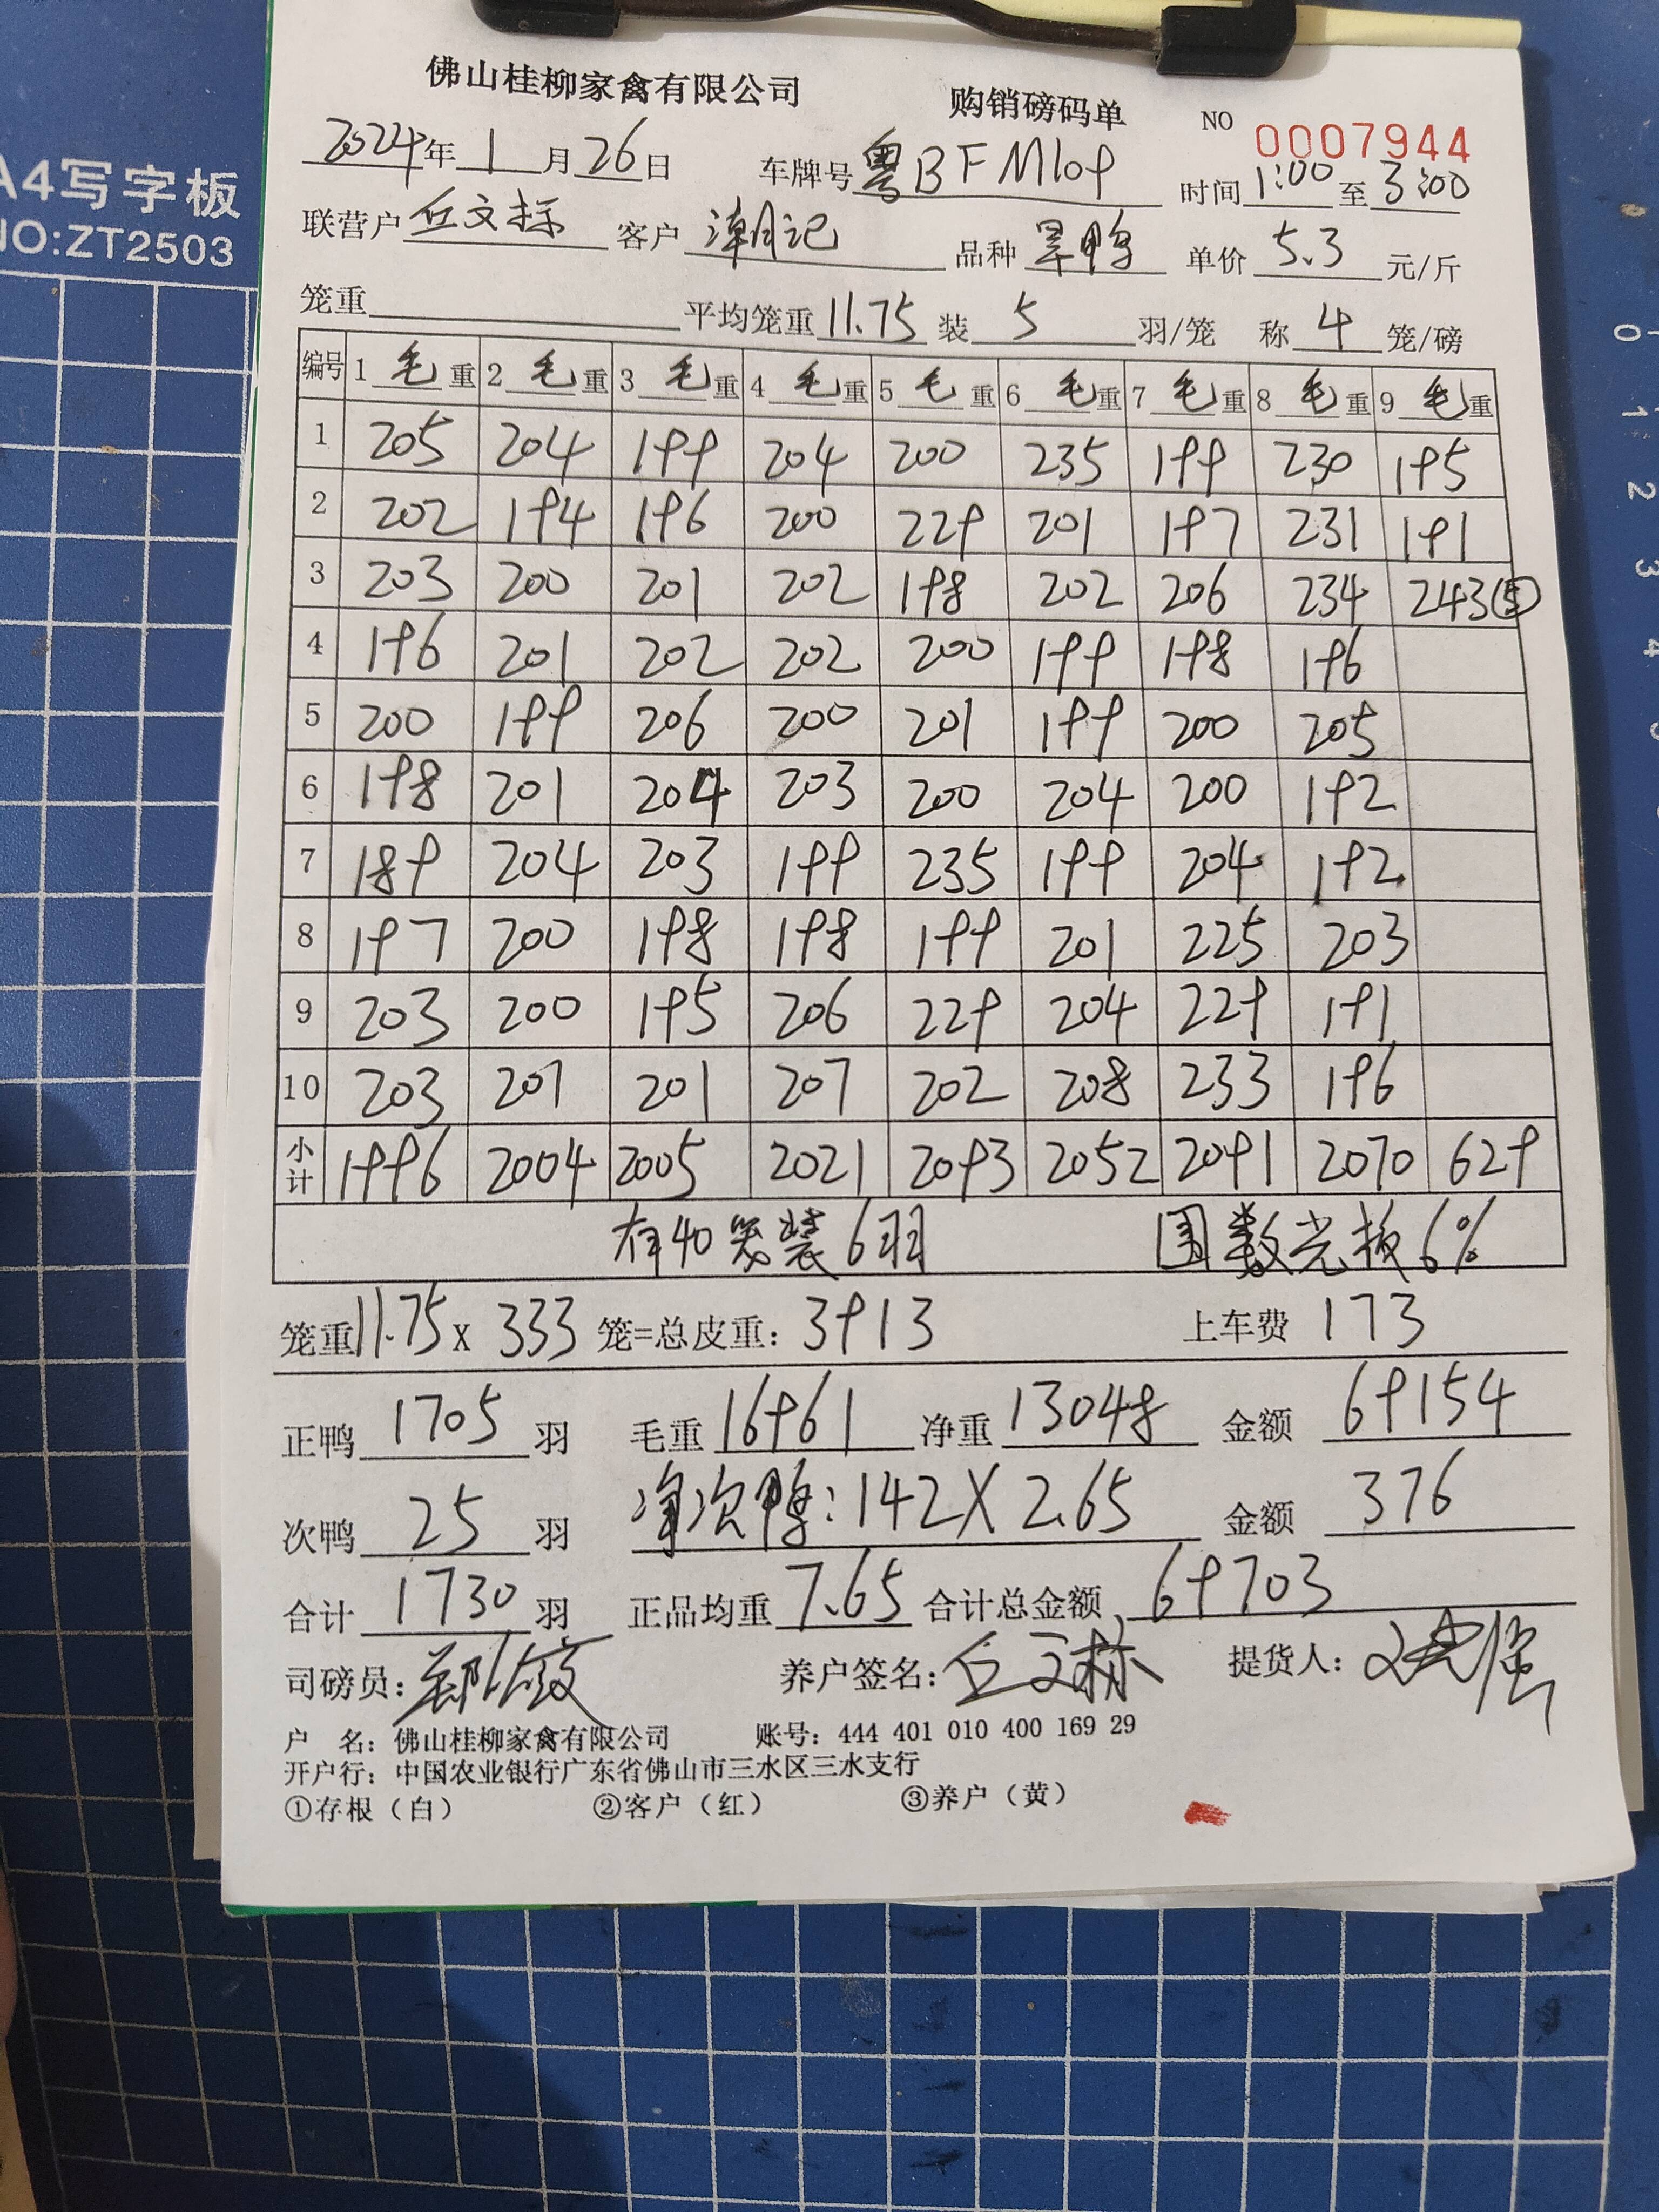 A4写字板
NO:ZT2503
佛山桂柳家禽有限公司 购销磅码单 NO 0007944
2024年1月26日 车牌号 粤BFM109 时间 1:00 至 3:00
联营户 丘文标 客户 潮记 品种 旱鸭 单价 5.3 元/斤
笼重 平均笼重 11.75 装 5 羽/笼 称 4 笼/磅
编号 1 毛 重 2 毛 重 3 毛 重 4 毛 重 5 毛 重 6 毛 重 7 毛 重 8 毛 重 9 毛 重
1 205 204 199 204 200 235 199 230 195
2 202 194 196 200 229 201 197 231 191
3 203 200 201 202 198 202 206 234 243⑤
4 196 201 202 202 200 199 198 196
5 200 199 206 200 201 199 200 205
6 198 201 204 203 200 204 200 192
7 189 204 203 199 235 199 204 192
8 197 200 198 198 199 201 225 203
9 203 200 195 206 229 204 229 191
10 203 201 201 207 202 208 233 196
小计 1996 2004 2005 2021 2093 2052 2091 2070 629
有40笼装6羽 国数光板6%
笼重 11.75 X 333 笼=总皮重: 3913 上车费 173
正鸭 1705 羽 毛重 16961 净重 13048 金额 69154
次鸭 25 羽 净次鸭: 142X2.65 金额 376
合计 1730 羽 正品均重 7.65 合计总金额 69703
司磅员: 养户签名: 丘文标 提货人:
户 名: 佛山桂柳家禽有限公司 账号: 444 401 010 400 169 29
开户行: 中国农业银行广东省佛山市三水区三水支行
①存根(白) ②客户(红) ③养户(黄)
0
1
2
3
4
5